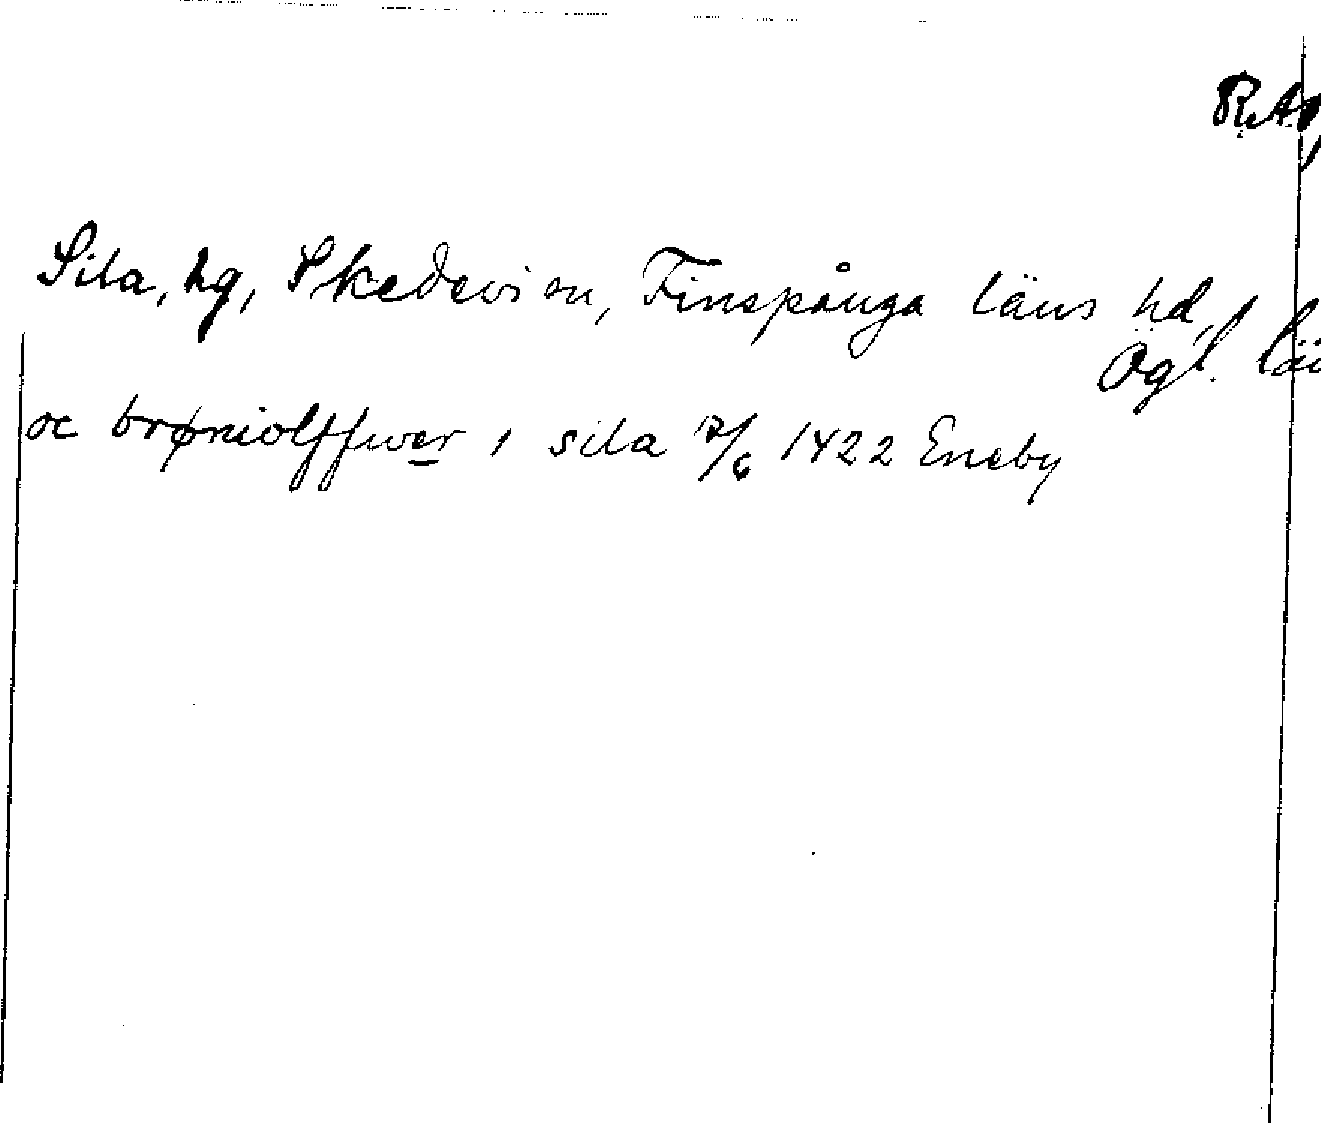 R.A.,
Sila, hg, Skedevi sn, Finspånga läns hd,
Ögl. län
oc brøniolffwer i sila 7/6 1422 Eneby